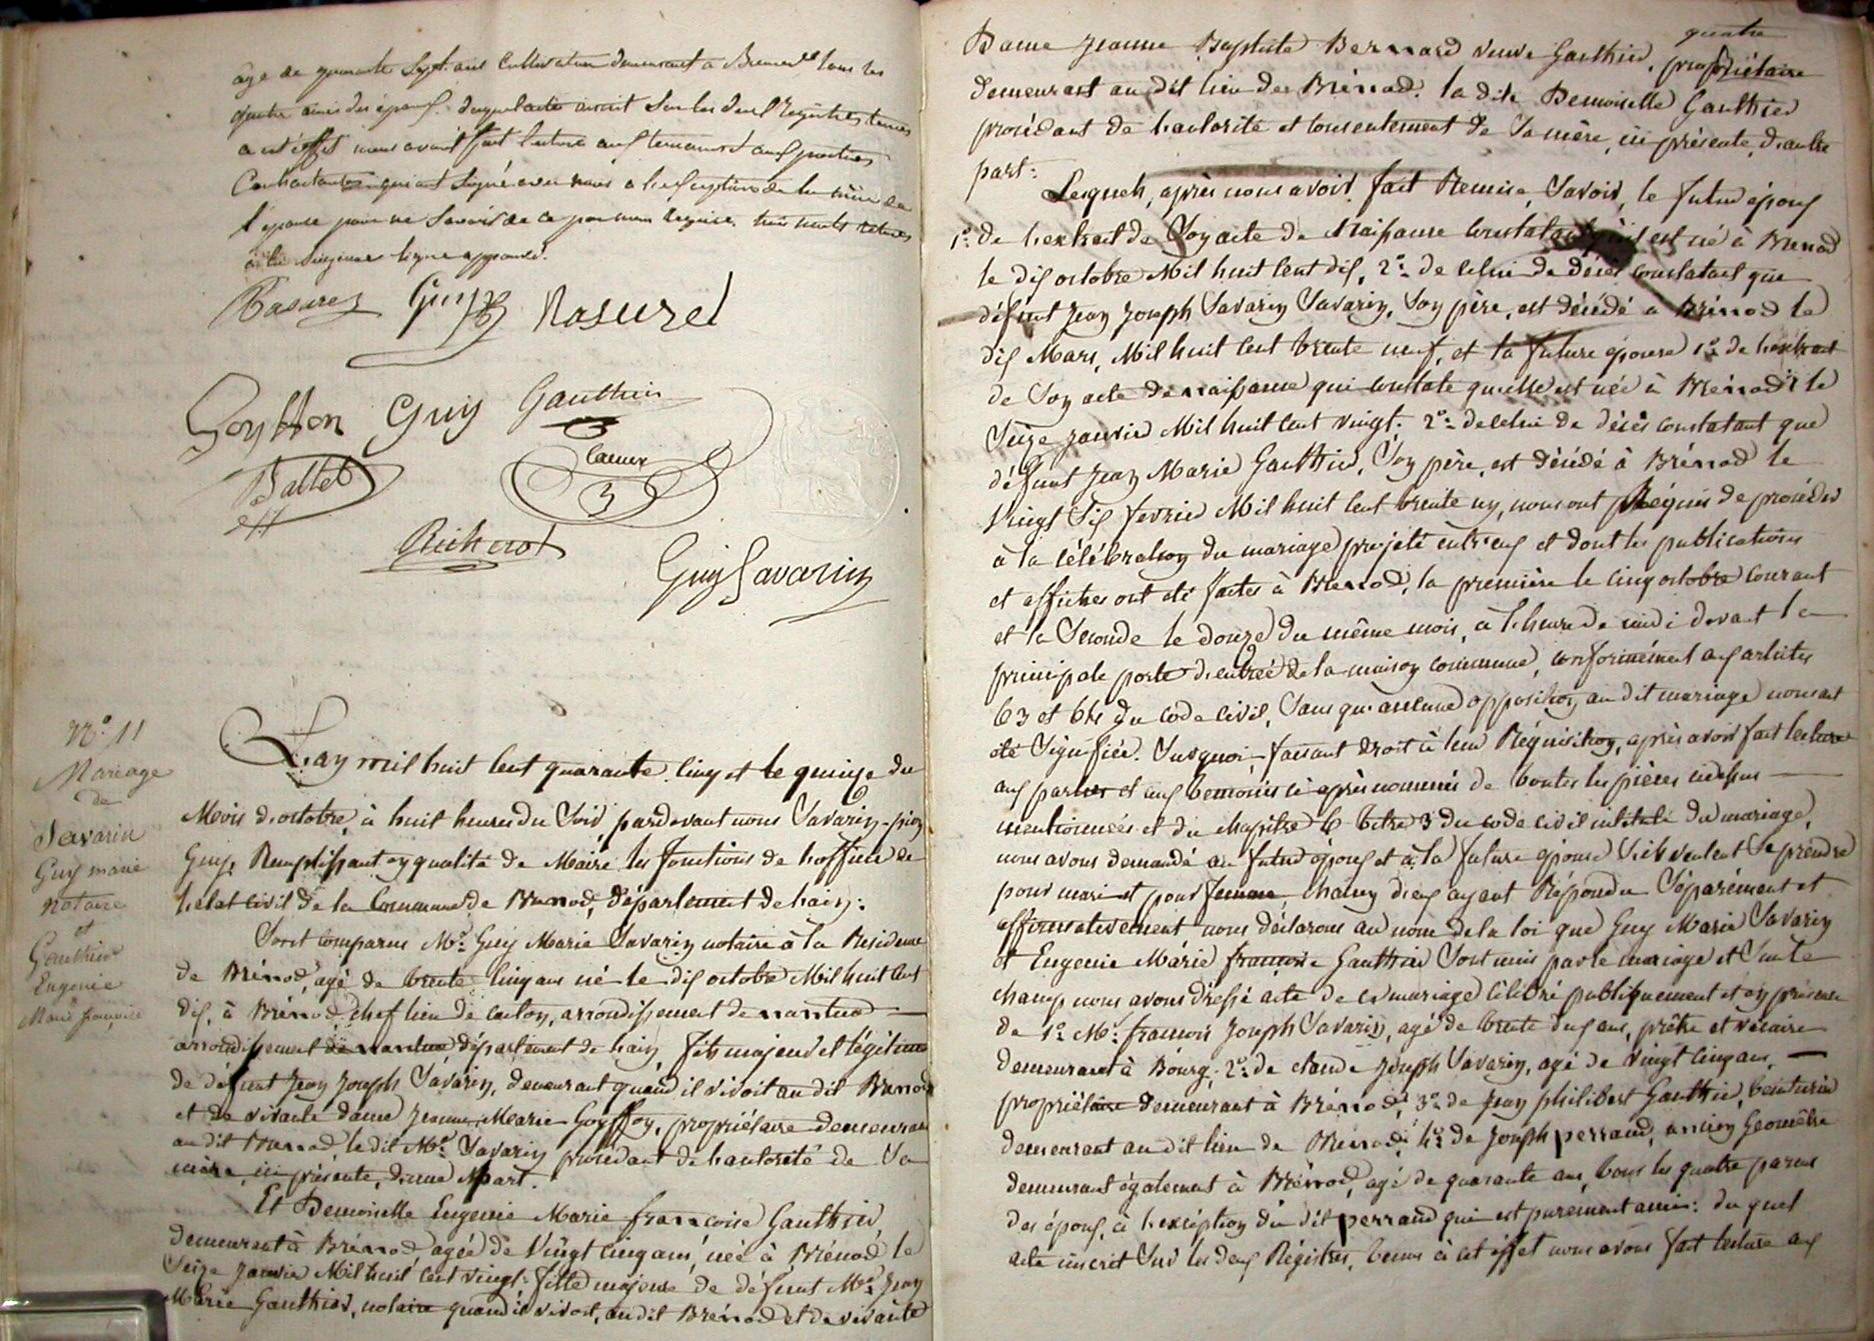 âgé de quarante sept ans cultivateur demeurant à Brenod tous les
quatre amis des époux. duquel acte inscrit sur les deux Registres tenus
à cet effet nous avons fait lecture aux temoins et aux parties
Contractantes qui ont signé avec nous à l'exception de la mère de
l'epouse pour ne savoir de ce par nous requise. trois mots
ligne approuvé.
Rasurel
Guy Savarin
Goyffon Guy Gauthier
Ballet
Richerot
N.º 11
Mariage
de
Savarin
Guy marie
notaire
et
Gauthier
Eugenie
Marie françoise
L'an mil huit cent quarante cinq et le quinze du
Mois d'octobre, à huit heures du soir, pardevant nous Savarin-pion
Guy, Remplissant en qualité de Maire les fonctions de l'officier de
l'état civil de la Commune de Brenod, département de l'ain:
Sont comparus Mr. Guy Marie Savarin notaire à la Residence
de Brénod, agé de trente cinq ans né le dix octobre Mil huit cent
dix, à Brénod, chef lieu de canton, arrondissement de nantua
arrondissement de nantua département de l'ain, fils majeur et légitime
de défunt Jean Joseph Savarin, demeurant quand il vivoit au dit Brenod
et de vivante dame Jeanne Marie Goyffon, propriétaire demeurant
au dit Brenod le dit Mr. Savarin procedant de l'autorité de Sa
mère, ici présente, d'une part.
Et Demoiselle Eugenie Marie françoise Gauthier,
demeurant à Brénod agée de Vingt cinq ans, née à Brénod le
Seize janvier Mil huit cent vingt. fille majeure de défunt Mr. Jean
Marie Gauthier, notaire quand il vivoit, au dit Brénod et de vivante
quatre
Dame Jeanne Baptiste Bernard veuve Gauthier, propriétaire
demeurant au dit lieu de Brénod. la dite Demoiselle Gauthier
procédant de l'autorité et consentement de Sa mère, ici présente, d'autre
part:
Lesquels, après nous avoir fait Remise, Savoir, le futur époux
1.º de l'extrait de Son acte de naissance constatant qu'il est né à Brenod
le dix octobre Mil huit cent dix, 2.º de celui de décès constatant que
défunt Jean Joseph Savarin Savarin, Son père, est décédé à Brénod le
dix Mars, Mil huit cent trente neuf, et la future épouse 1.º de l'extrait
de Son acte de naissance qui constate qu'elle est née à Brénod le
Seize janvier Mil huit cent vingt. 2.º de celui de décès constatant que
défunt Jean Marie Gauthier, Son père, est décédé à Brénod le
Vingt Six fevrier Mil huit cent trente un, nous ont Réquis de procéder
à la célébration du mariage projeté entr'eux et dont les publications
et affiches ont été faites à Brenod, la première le cinq octobre courant
et la Seconde le douze du même mois, à l'heure de midi devant la
principale porte d'entrée de la maison commune, conformément aux articles
63 et 64 du code civil, Sans qu'aucune opposition au dit mariage nous ait
été Signifiée. Surquoi faisant droit à leur Réquisition, après avoir fait lecture
aux parties et aux temoins ci après nommés de toutes les pièces cidessus
mentionnées et du chapitre 6 titre 3 du code civil intitulé Du mariage,
nous avons demandé au futur époux et à la future épouse S'ils veulent Se prendre
pour mari et pour femme, chacun d'eux ayant Répondu Séparément et
affirmativement nous déclarons au nom de la loi que Guy Marie Savarin
et Eugenie Marie françoise Gauthier Sont unis par le mariage et Sur le
champ nous avons dréssé acte de ce mariage célébré publiquement et en présence
de 1.º Mr. francois Joseph Savarin, agé de trente deux ans, prêtre et vicaire
demeurant à Bourg, 2.º de claude Joseph Savarin, agé de vingt cinq ans,
propriétaire demeurant à Brénod, 3.º de Jean philibert Gauthier, teinturier
demeurant au dit lieu de Brénod, 4.º de Joseph perraud, ancien Geomêtre
demeurant également à Brénod, agé de quarante ans, tous les quatre parens
des époux, à l'exception du dit perraud qui est purement ami: du quel
acte inscrit Sur les deux Régistres, tenus à cet effet nous avons fait lecture aux